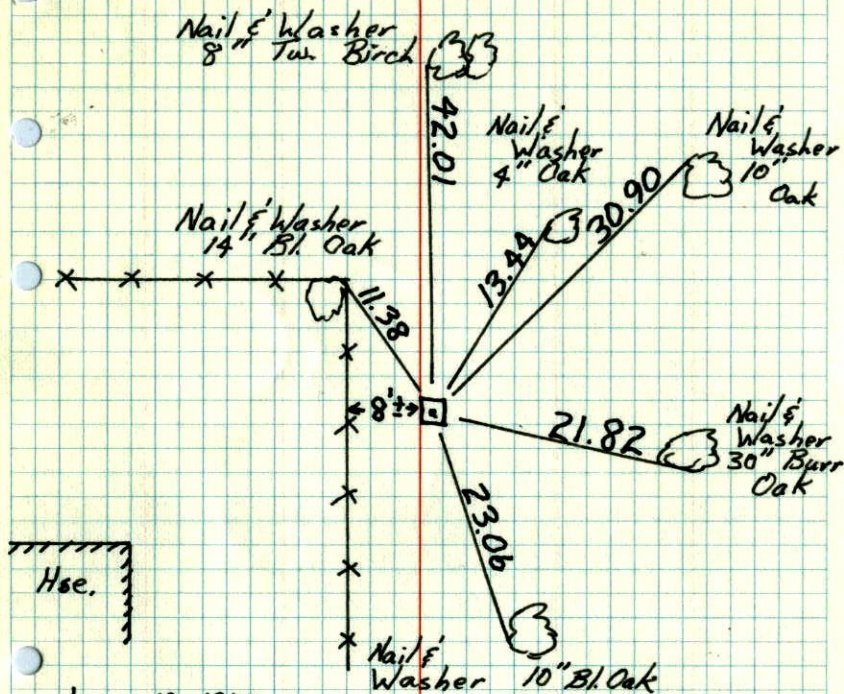 Nail & Washer
8" Tw. Birch
42.01
Nail &
Washer
4" Oak
Nail &
Washer
10"
Oak
13.44
30.90
Nail & Washer
14" Bl. Oak
11.38
8'±
21.82
Nail &
Washer
30" Burr
Oak
23.06
Hse.
Nail &
Washer 10" Bl. Oak